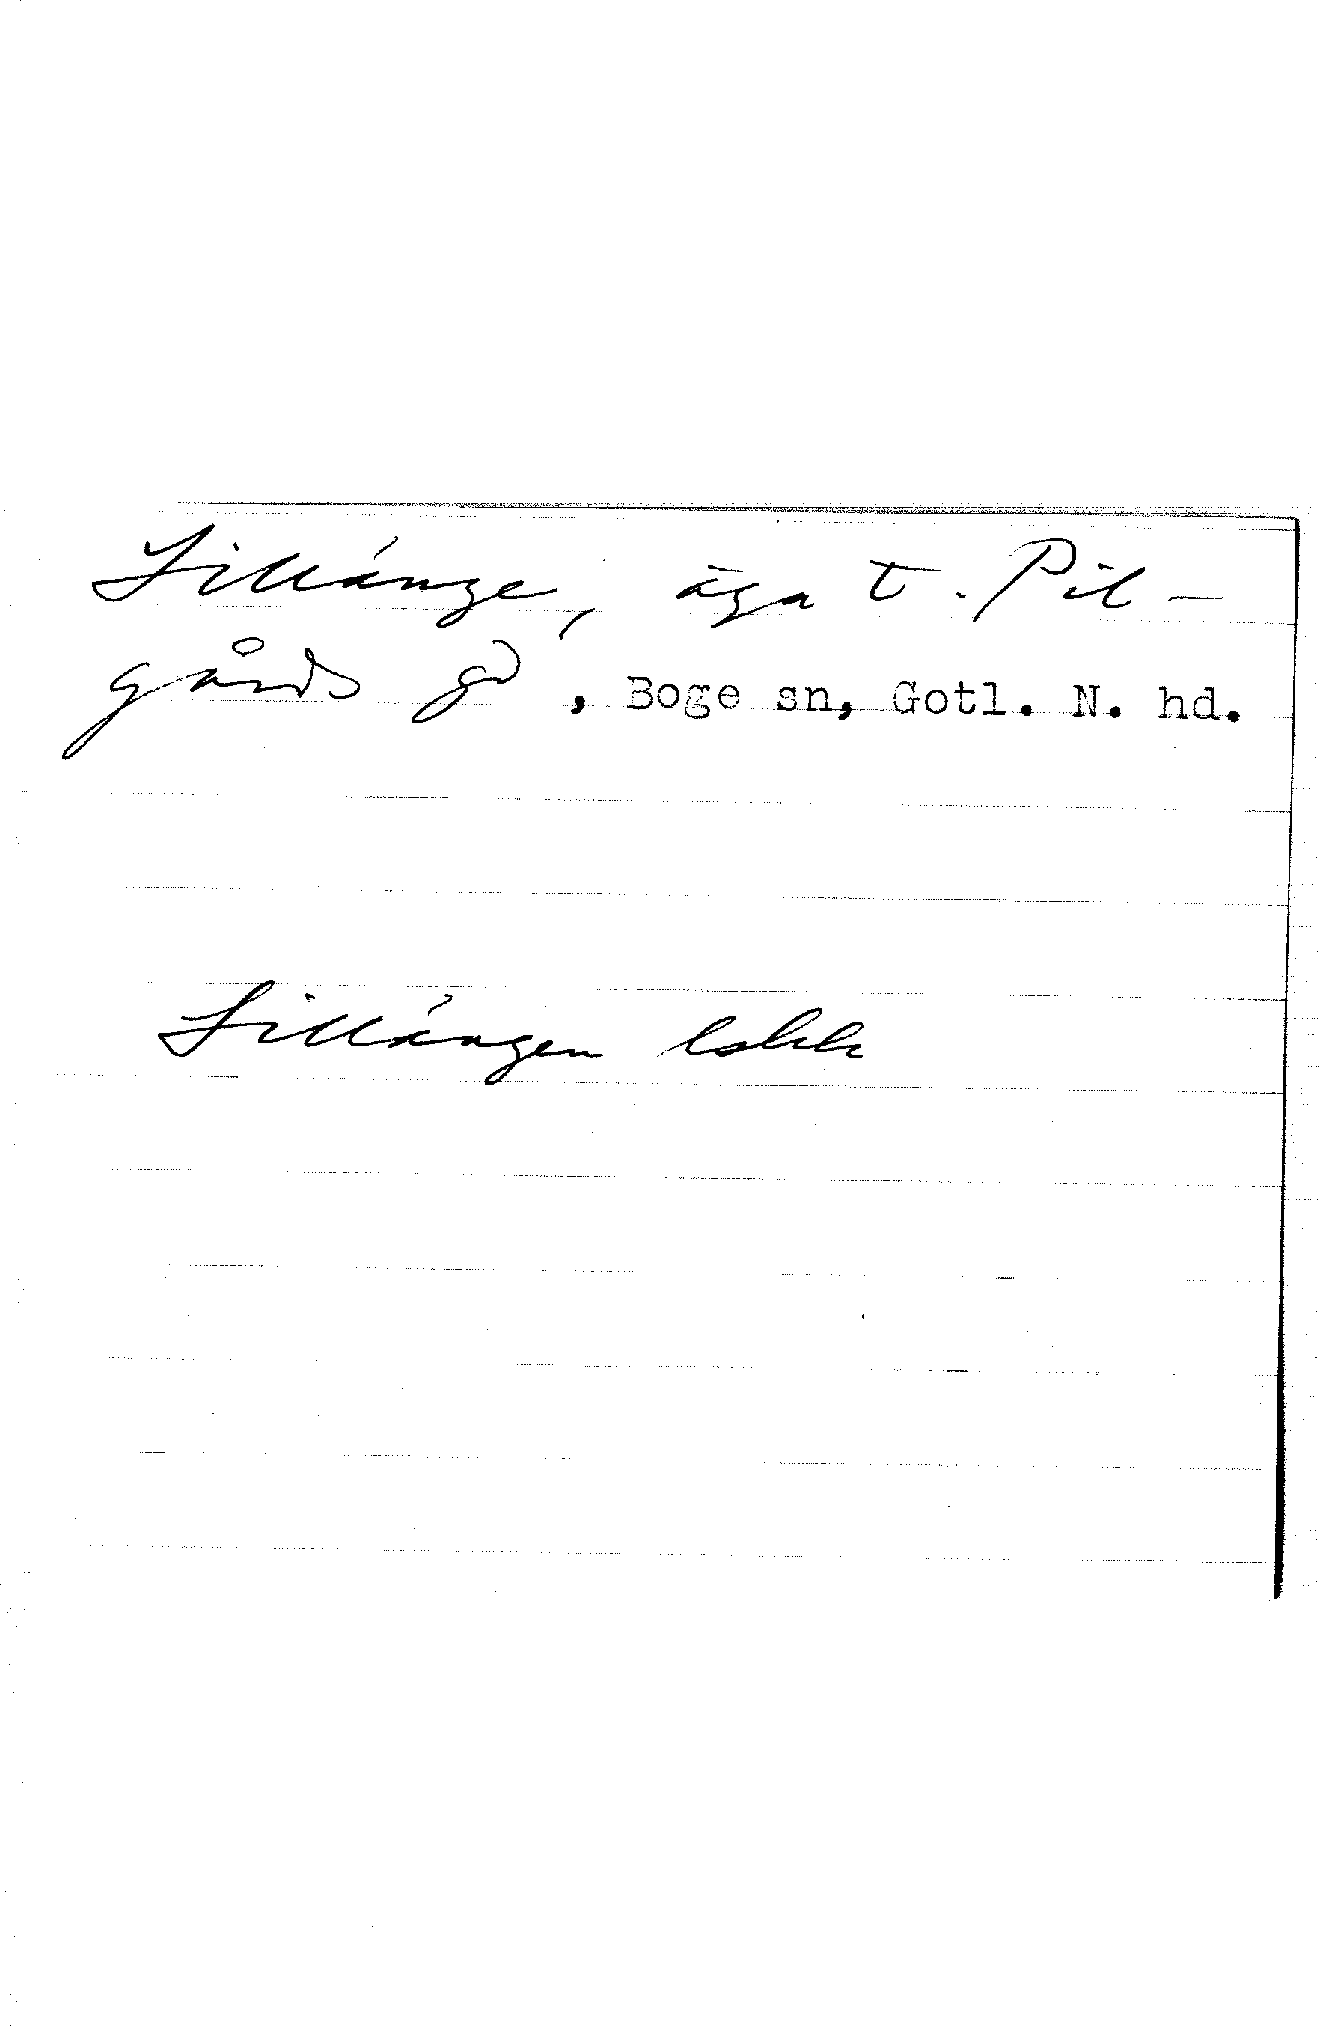 Lillänge, äga t. Pil-
gårds gd, Boge sn, Gotl. N. hd.
Lillängen